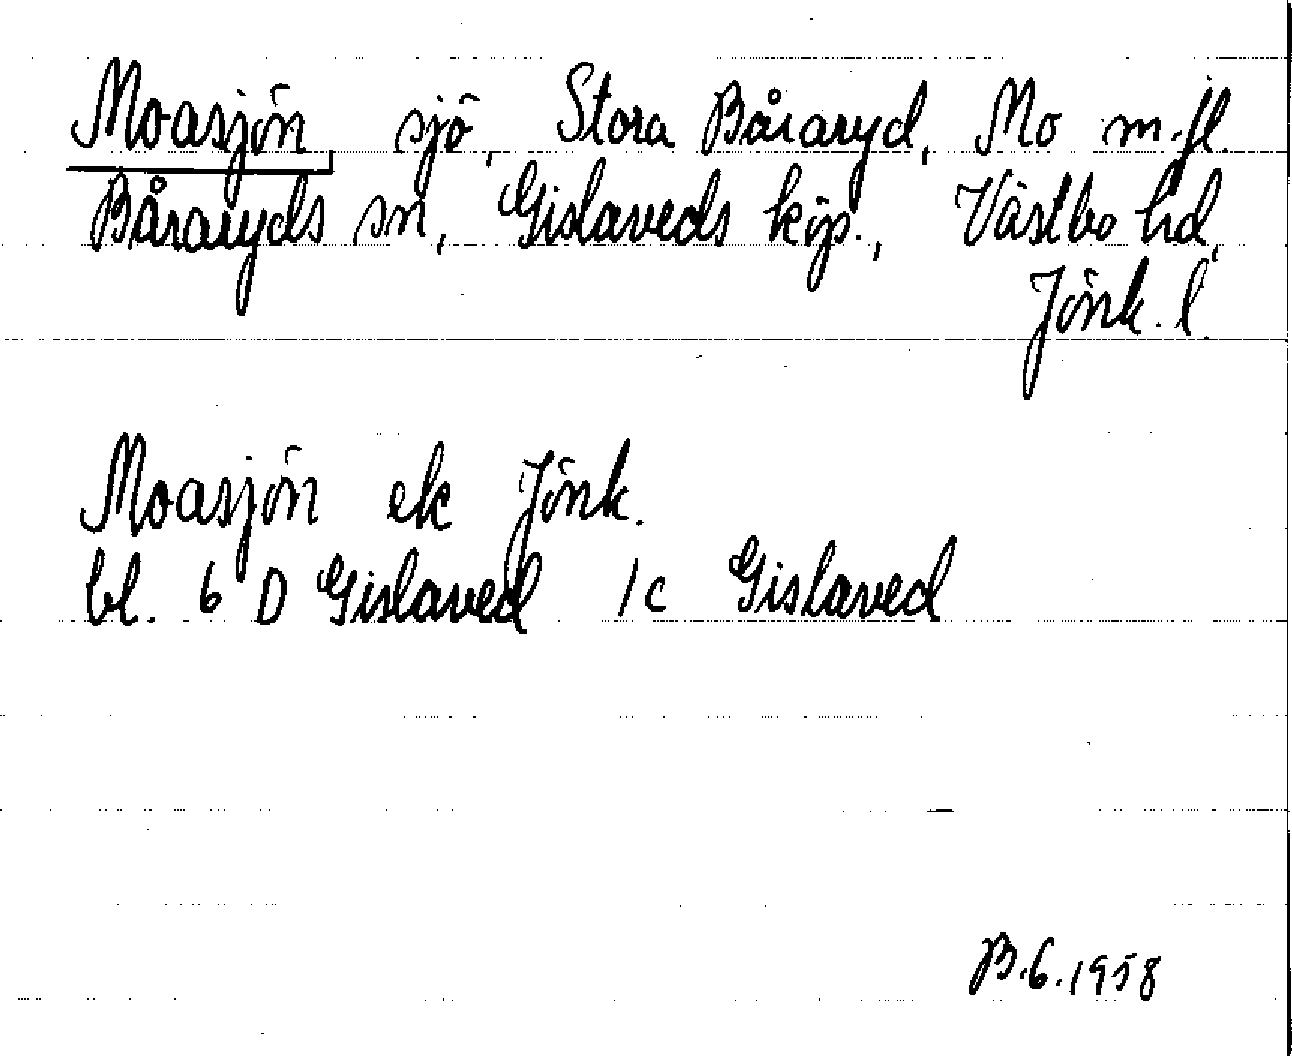 Moasjön, sjö, Stora Båraryd, Mo m.fl.
Båraryds sn, Gislaveds köp., Västbo hd,
Jönk. l.
Moasjön ek Jönk.
bl. 6 D Gislaved 1c Gislaved
B.6.1958